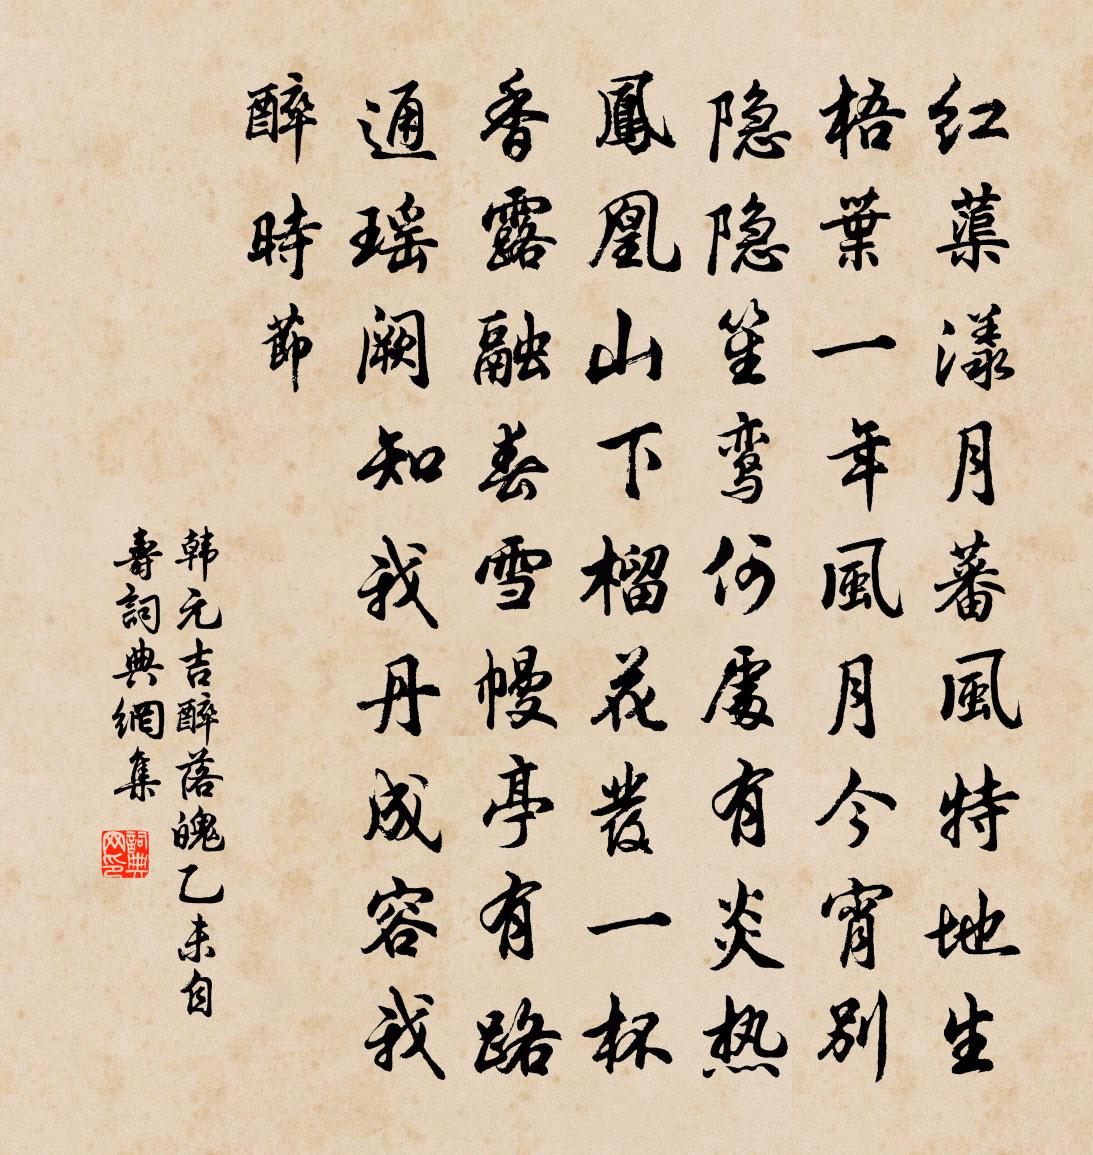 红蕖漾月蕃風特地生
梧葉一年風月今宵别
隐隐笙鸾何處有炎热
鳳凰山下榴花發一杯
香露融春雪幔亭有路
通瑶阙知我丹成容我
醉時節
韩元吉醉落魄乙未自
壽詞典網集
詞典网印